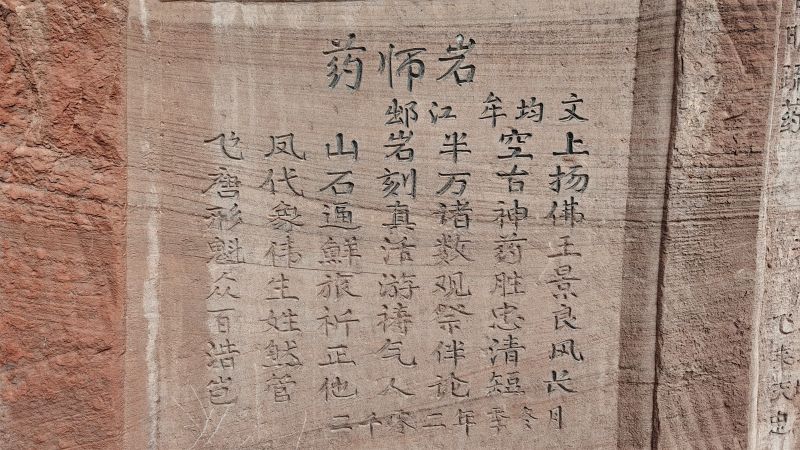 药师岩
邨江 牟均 文
飞凤山岩半空上
唐代石刻万古扬
形象逼真诸神佛
魁伟鲜活数药王
众生旅游观胜景
百姓祈祷祭忠良
浩然正气伴清风
岂管他人论短长
二千零二年季冬月
药